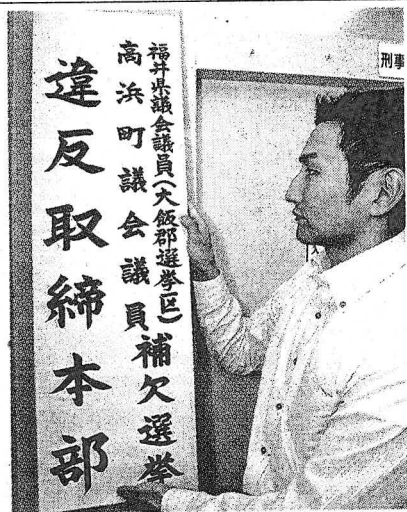 福井県議会議員(大飯郡選挙区)
高浜町議会議員補欠選挙
違反取締本部
刑事